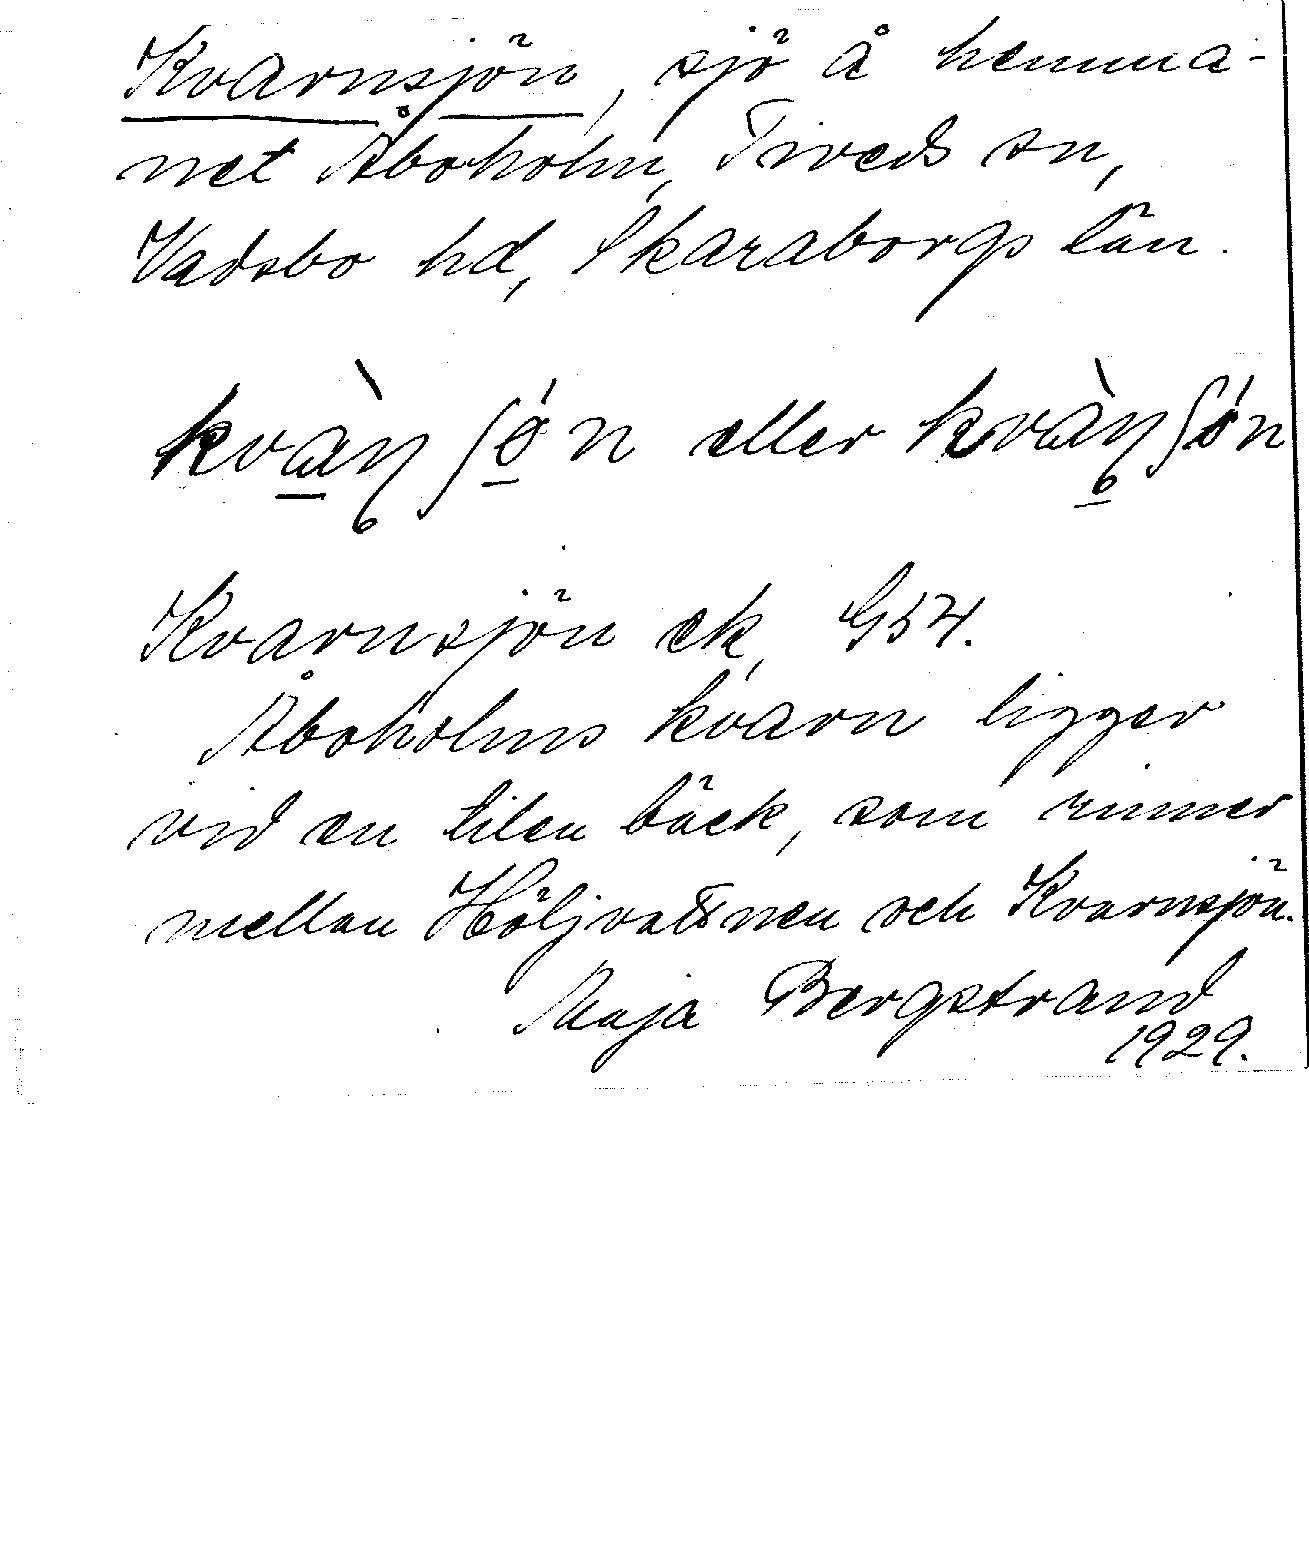 Kvarnsjön, sjö å hemma-
net Åboholm, Tiveds sn,
Vadsbo hd, Skaraborgs län.
eller
Kvarnsjön ek, G54.
Åboholms kvarn ligger
vid en liten bäck, som rinner
mellan Höljvattnen och Kvarnsjön.
Maja Bergstrand
1929.